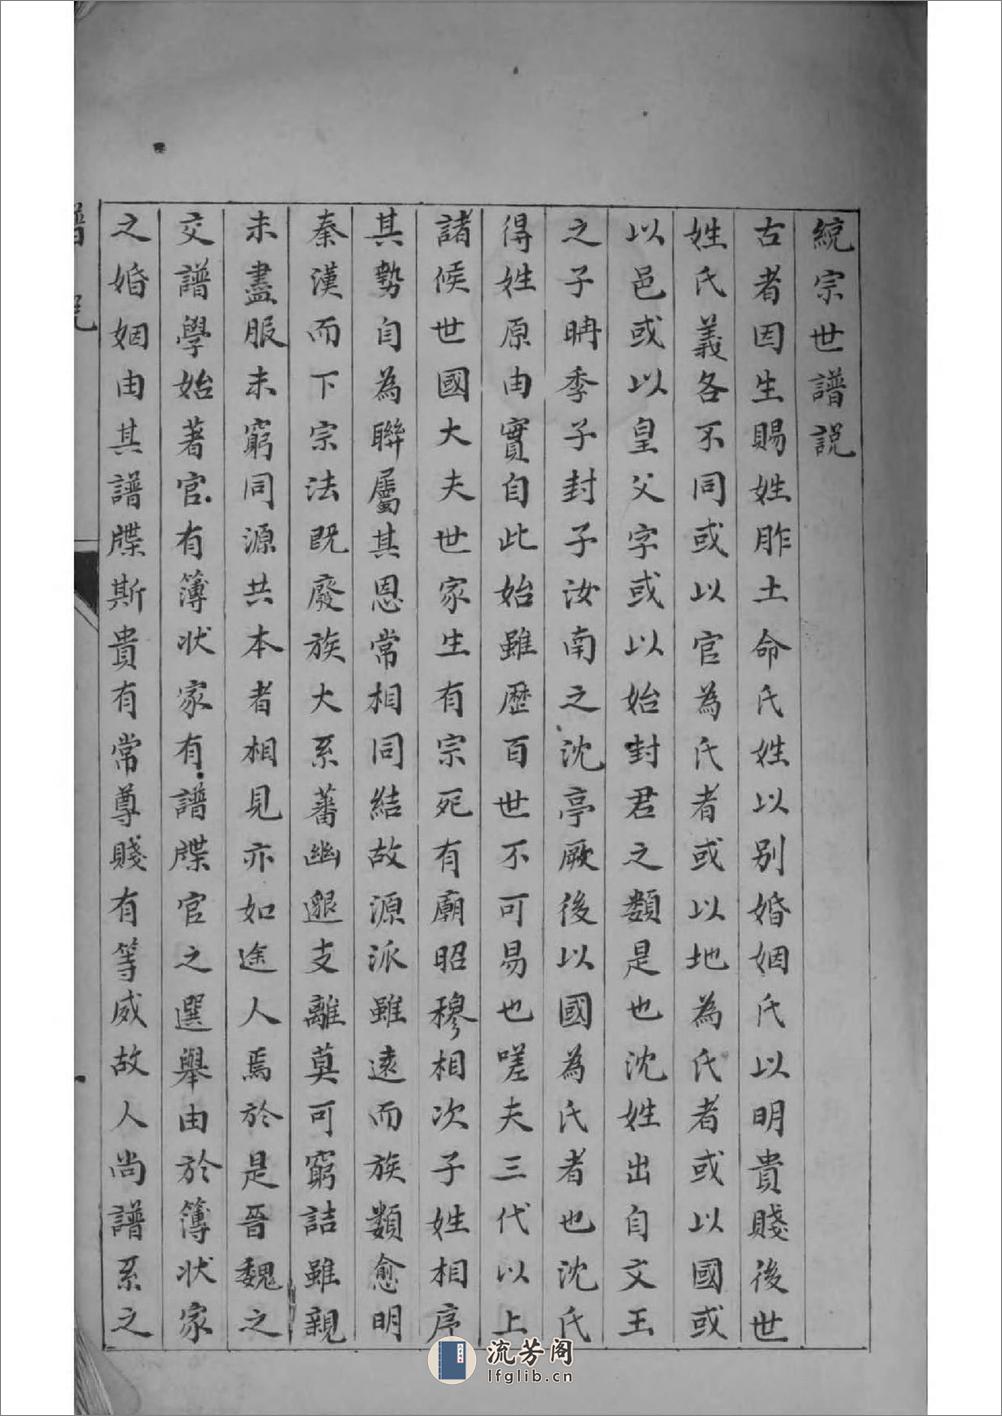 統宗世譜説
古者因生賜姓胙土命氏姓以别婚姻氏以明貴賤後世
姓氏義各不同或以官為氏者或以地為氏者或以國或
以邑或以皇父字或以始封君之類是也沈姓出自文王
之子冉季子封子汝南之沈亭厥後以國為氏者也沈氏
得姓原由實自此始雖歷百世不可易也嗟夫三代以上
諸候世國大夫世家生有宗死有廟昭穆相次子姓相序
其勢自為聯屬其恩常相同結故源派雖遠而族類愈明
秦漢而下宗法既廢族大系蕃幽邈支離莫可窮詰雖親
未盡服未窮同源共本者相見亦如途人焉於是晉魏之
交譜學始著官有簿状家有譜牒官之選舉由於簿状家
之婚姻由其譜牒斯貴有常尊賤有等威故人尚譜系之
流芳阁
lfglib.cn